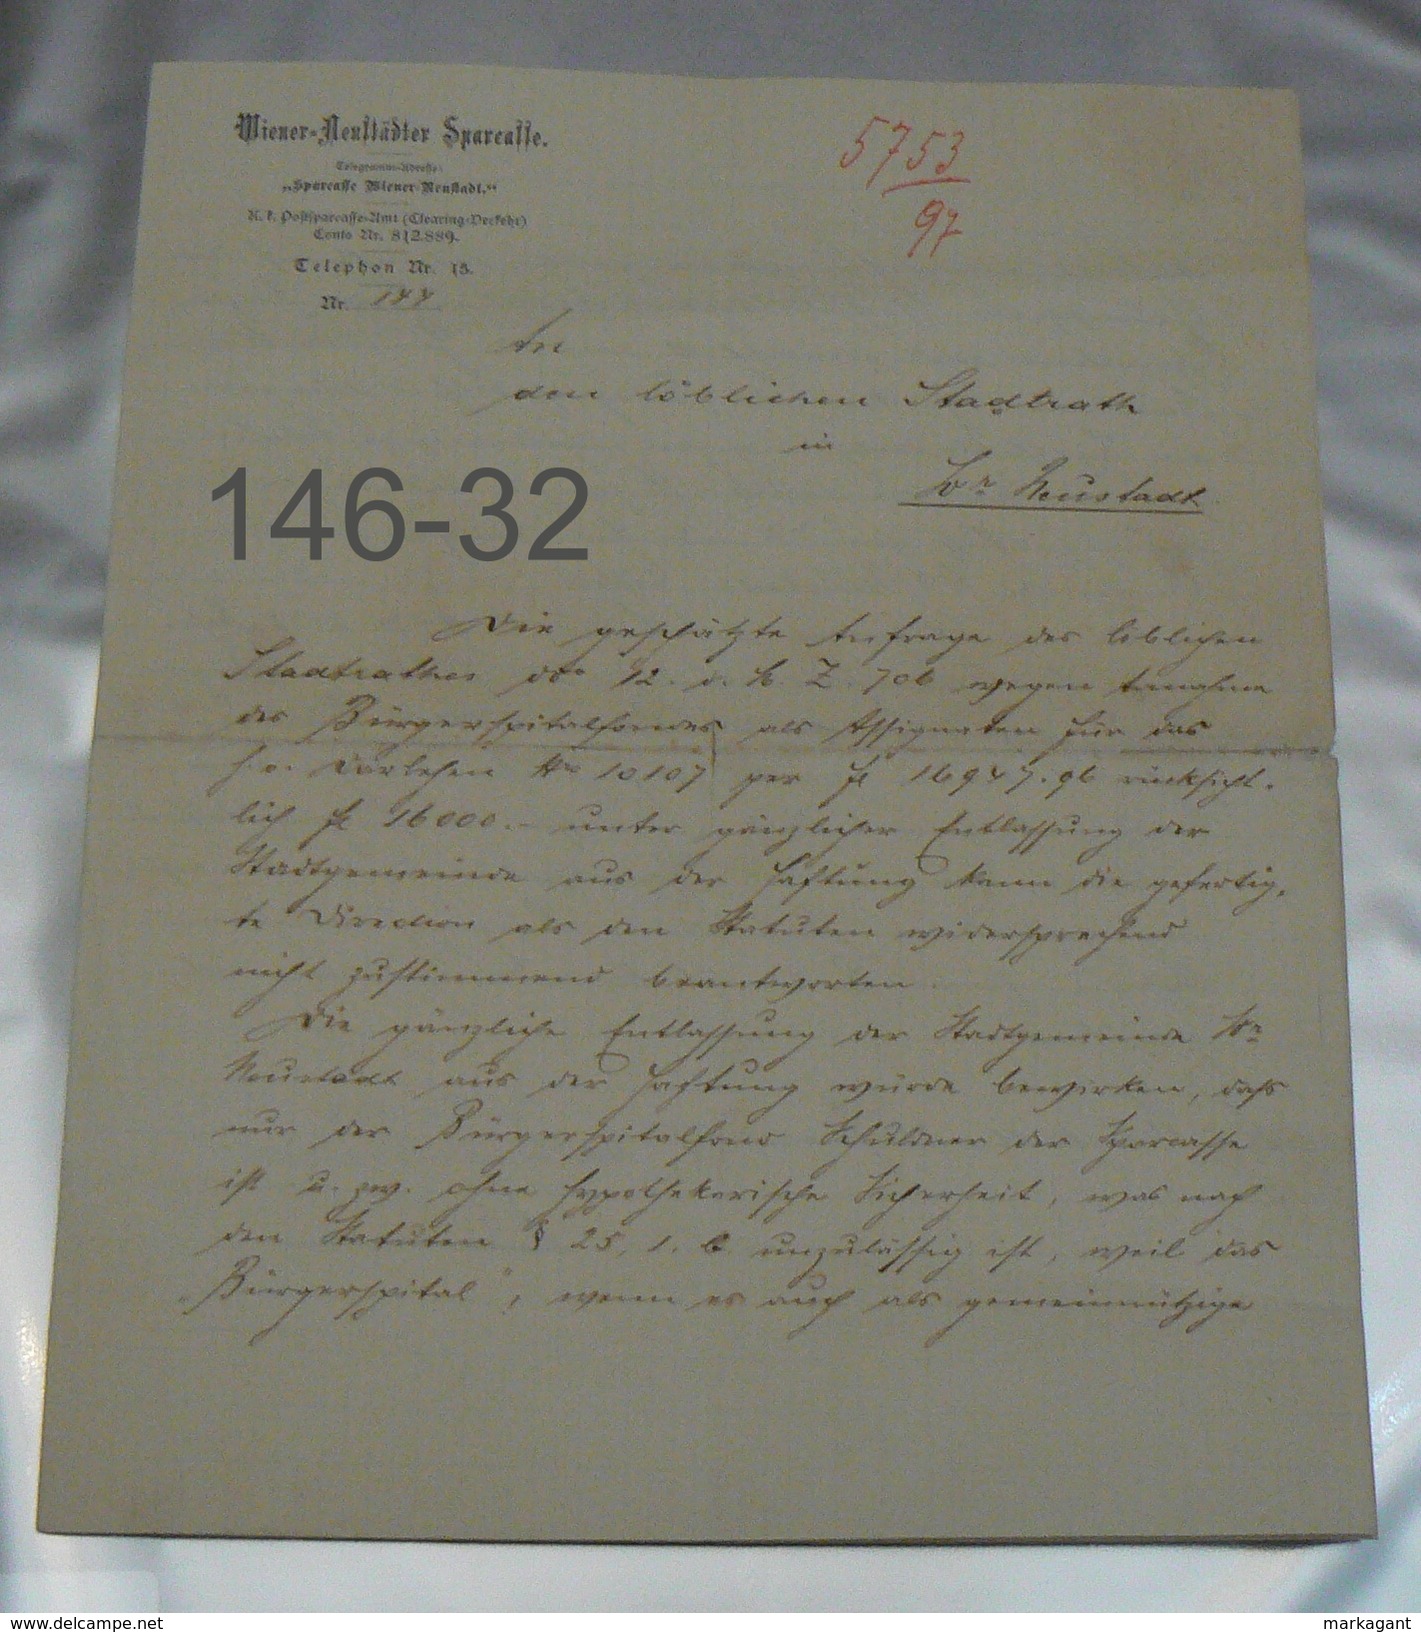 Wiener-Neustädter Sparcasse.
Telegramm-Adresse:
„Sparcasse Wiener-Neustadt."
K. k. Postsparcasse-Amt (Clearing-Verkehr)
Conto Nr. 812.889.
Telephon Nr. 15.
Nr. 147
5753
97
An
den löblichen Stadtrath
in
Wr Neustadt
146-32
Die geschätzte Anfrage des löblichen
Stadtrathes ddo 12. d. M. Z. 706 wegen Annahme
des Bürgerspitalfondes als Assignaten für das
h. o. Darlehen No 10107 per fl 16947.96 rücksicht-
lich fl 16000.- unter gänzlicher Entlassung der
Stadtgemeinde aus der Haftung kann die gefertig-
te Direction als den Statuten widersprechend
nicht zustimmend beantworten.
Die gänzliche Entlassung der Stadtgemeinde Wr
Neustadt aus der Haftung würde bewirken, dass
nur der Bürgerspitalfond Schuldner der Sparcasse
ist u. zw. ohne hypothekarische Sicherheit, was nach
den Statuten § 25, 1. b unzulässig ist, weil das
„Bürgerspital", wenn es auch als gemeinnützige
www.delcampe.net
markagant